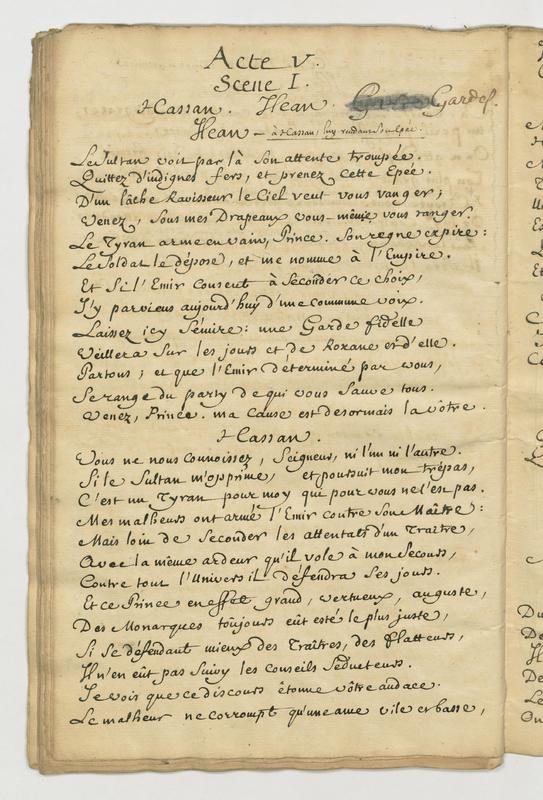 Acte V.
Scene I.
Hassan. Hean. Gardes.
Hean – à Hassan, luy rendant son epée.
Le Sultan voit par là son attente trompée.
Quittez d'indignes fers, et prenez cette Epée.
D'un lâche Ravisseur le Ciel veut vous vanger;
Venez, sous mes Drapeaux vous-même vous ranger.
Le Tyran arme en vain, Prince. Son regne expire:
Le Soldat le dépose, et me nomme à l'Empire.
Et si l'Emir consent à seconder ce choix,
J'y parviens aujourd'huy d'une commune voix.
Laissez icy Sémire: une Garde fidelle
Veillera sur les jours et de Roxane et d'elle.
Partons; et que l'Emir déterminé par vous,
Se range du party de qui vous sauve tous.
Venez, Prince. ma cause est desormais la vôtre.
Hassan.
Vous ne nous connoissez, Seigneur, ni l'un ni l'autre.
Si le Sultan m'opprime, et poursuit mon trépas,
C'est un Tyran pour moy qui pour vous ne l'est pas.
Mes malheurs ont armé l'Emir contre son Maître:
Mais loin de seconder les attentats d'un Traître,
Avec la même ardeur qu'il vole à mon secours,
Contre tout l'Univers il défendra ses jours.
Et ce Prince en effet grand, vertueux, auguste,
Des Monarques toûjours eût esté le plus juste,
Si se défendant mieux des Traîtres, des flatteurs,
Il n'en eût pas suivy les conseils séducteurs.
Je vois que ce discours étonne vôtre audace.
Le malheur ne corrompt qu'une ame vile et basse,